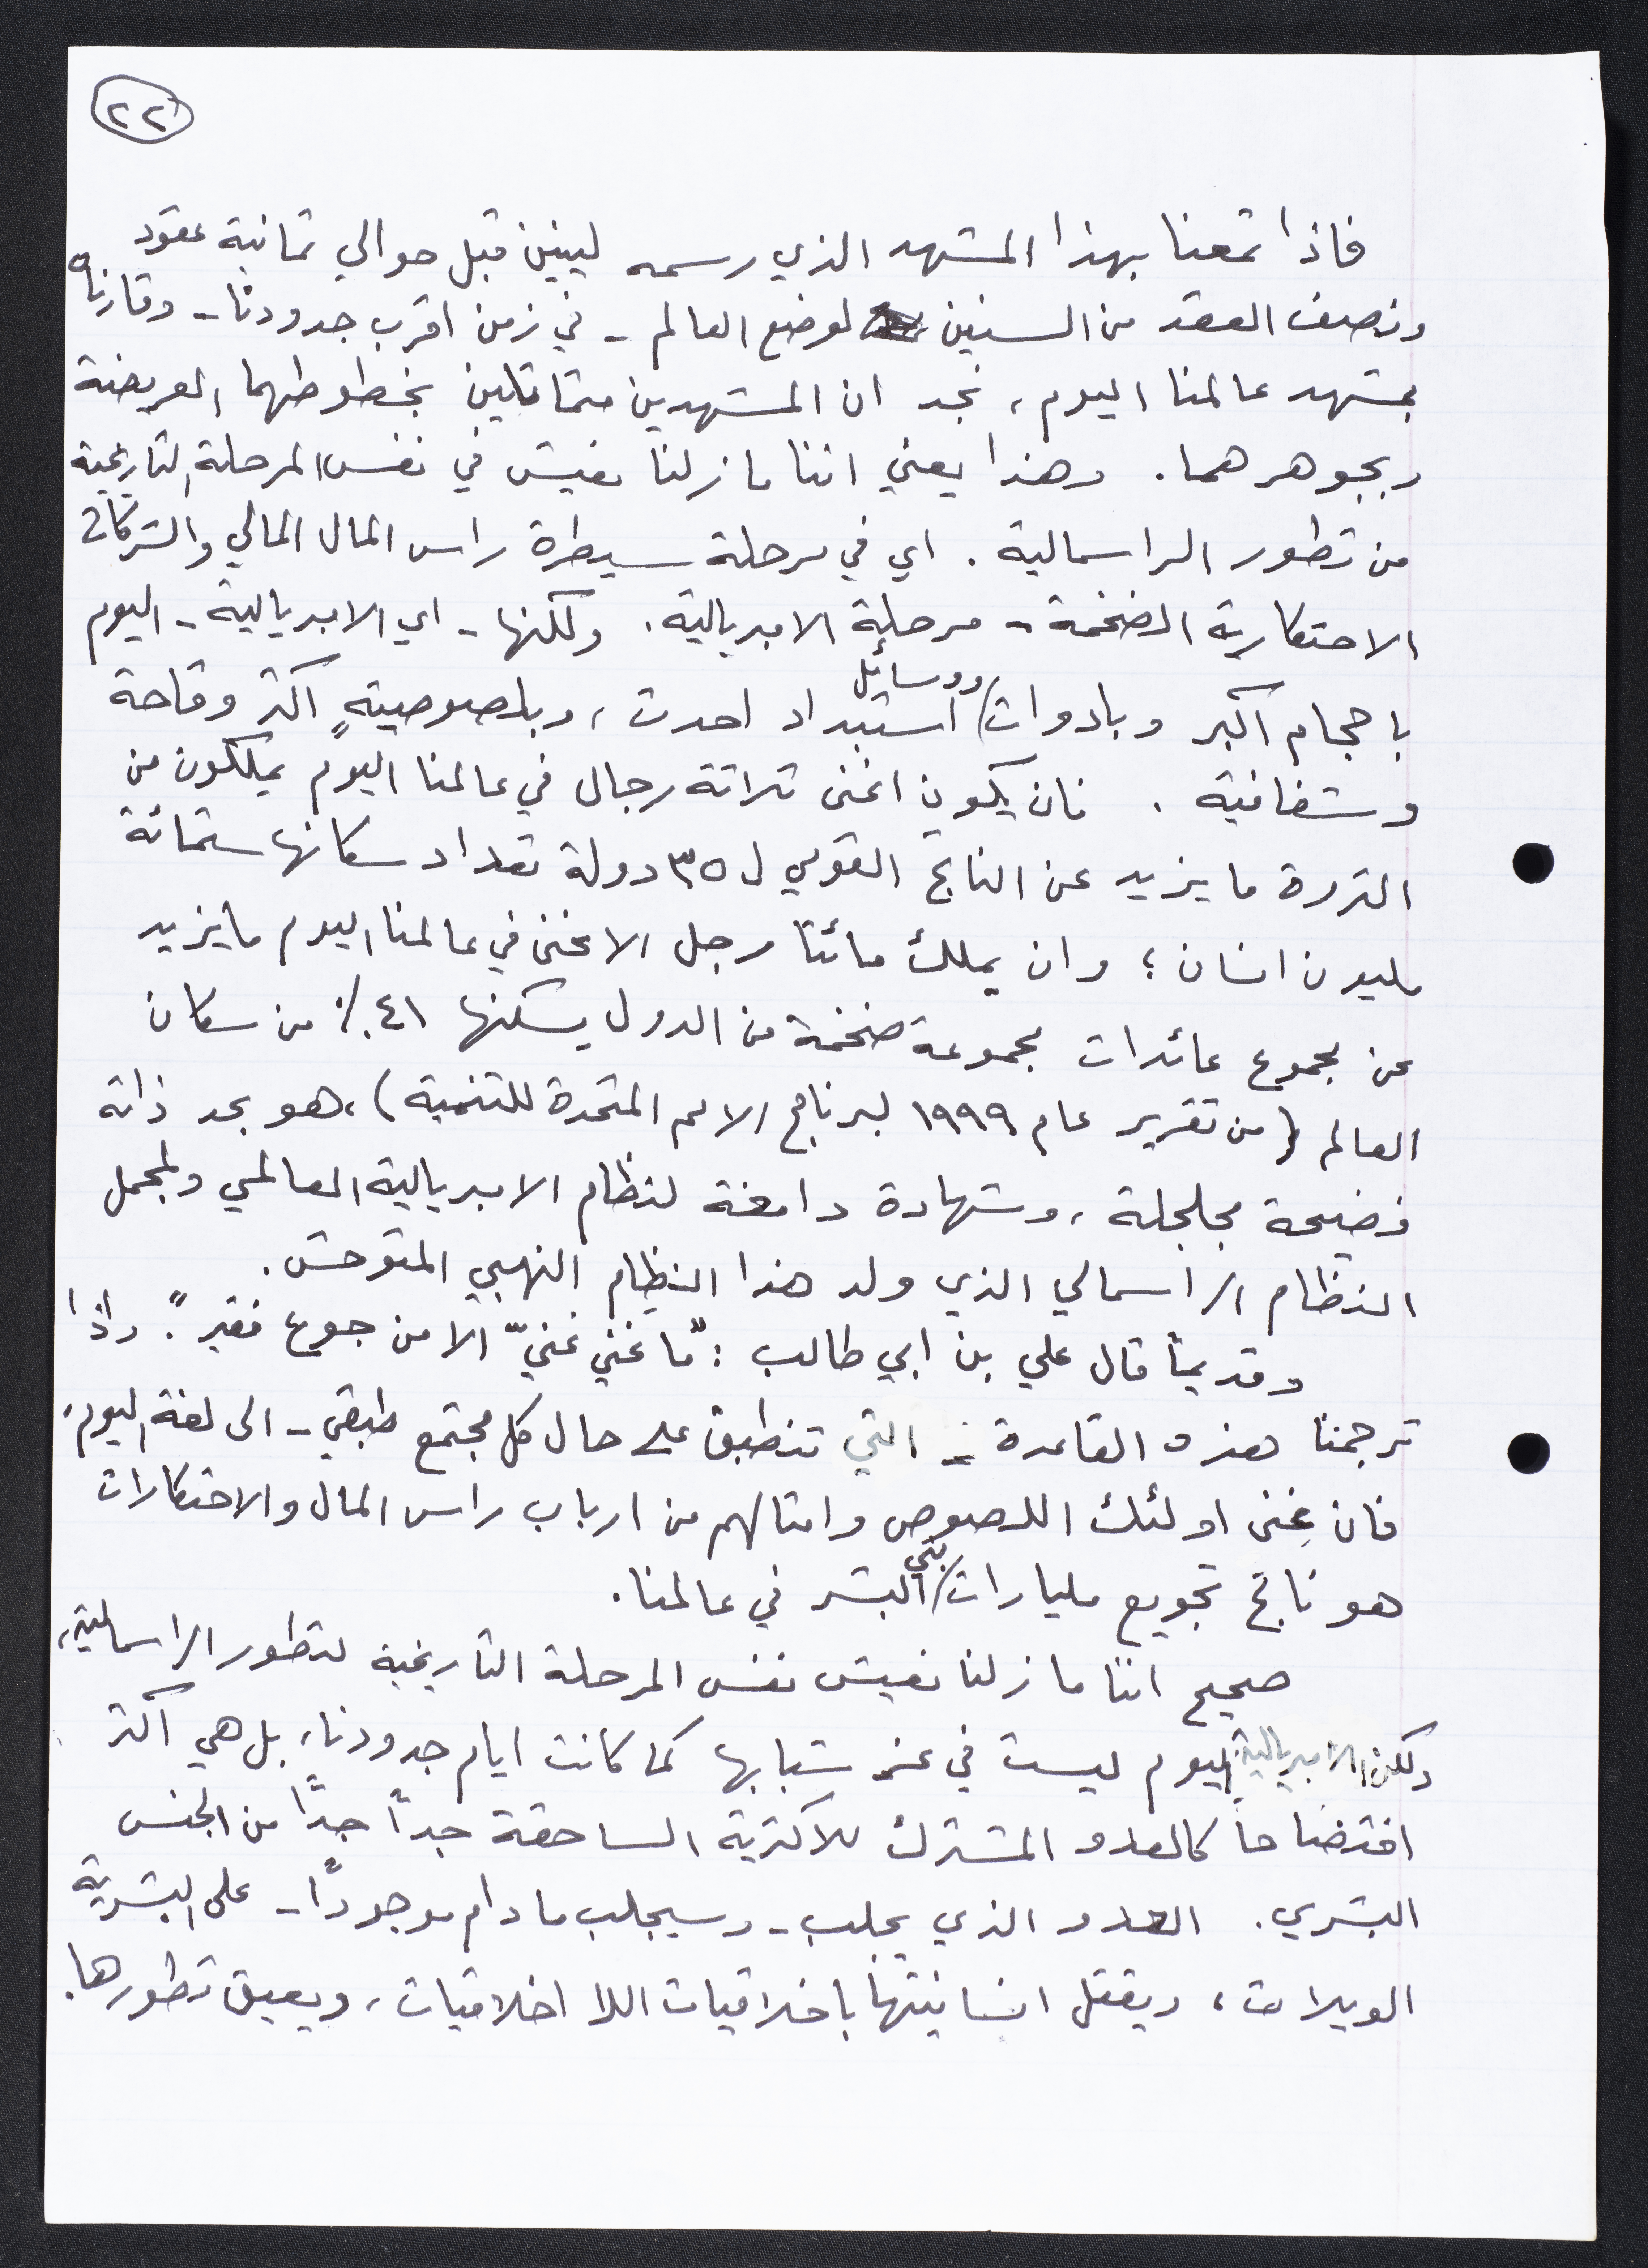 ٢٢
فاذا تمعنا بهذا المشهد الذي رسمه لينين قبل حوالي ثمانية عقود
ونصف العقد من السنين لوضع العالم - في زمن اقرب جدودنا - وقارناه
بمشهد عالمنا اليوم، نجد ان المشهدين متماثلين بخطوطهما العريضة
وبجوهرهما. وهذا يعني اننا ما زلنا نعيش في نفس المرحلة التاريخية
من تطور الراسمالية. اي في مرحلة سيطرة راس المال المالي والشركات
الاحتكارية الضخمة - مرحلة الامبريالية. ولكنها - اي الامبريالية - اليوم
باحجام اكبر وبادوات ووسائل استبداد احدث، وبلصوصيةٍ اكثر وقاحة
وشفافية. فان يكون اغنى ثلاثة رجال في عالمنا اليوم يملكون من
الثروة ما يزيد عن الناتج القومي ل ٣٥ دولة تعداد سكانها ستمائة
مليون انسان؛ وان يملك مائتا رجل الاغنى في عالمنا اليوم ما يزيد
عن مجموع عائدات مجموعة ضخمة من الدول يسكنها ٤١٪ من سكان
العالم (من تقرير عام ١٩٩٩ لبرنامج الامم المتحدة للتنمية)، هو بحد ذاته
فضيحة مجلجلة، وشهادة دامغة لنظام الامبريالية العالمي ولمجمل
النظام الراسمالي الذي ولد هذا النظام النهبي المتوحش.
وقديماً قال علي بن ابي طالب: "ما غني غنيّ الا من جوع فقير". واذا
ترجمنا هذه القاعدة - التي تنطبق على حال كل مجتمع طبقي - الى لغة اليوم،
فان غِنى اولئك اللصوص وامثالهم من ارباب راس المال والاحتكارات
هو ناتج تجويع مليارات بني البشر في عالمنا.
صحيح اننا ما زلنا نعيش نفس المرحلة التاريخية لتطور الراسمالية،
ولكن الامبريالية اليوم ليست في عز شبابها كما كانت ايام جدودنا، بل هي اكثر
افتضاحاً كالعدو المشترك للاكثرية الساحقة جداً جداً من الجنس
البشري. العدو الذي يجلب - وسيجلب ما دام موجوداً - على البشرية
الويلات، ويقتل انسانيتها باخلاقيات اللا اخلاقيات، ويعيق تطورها.